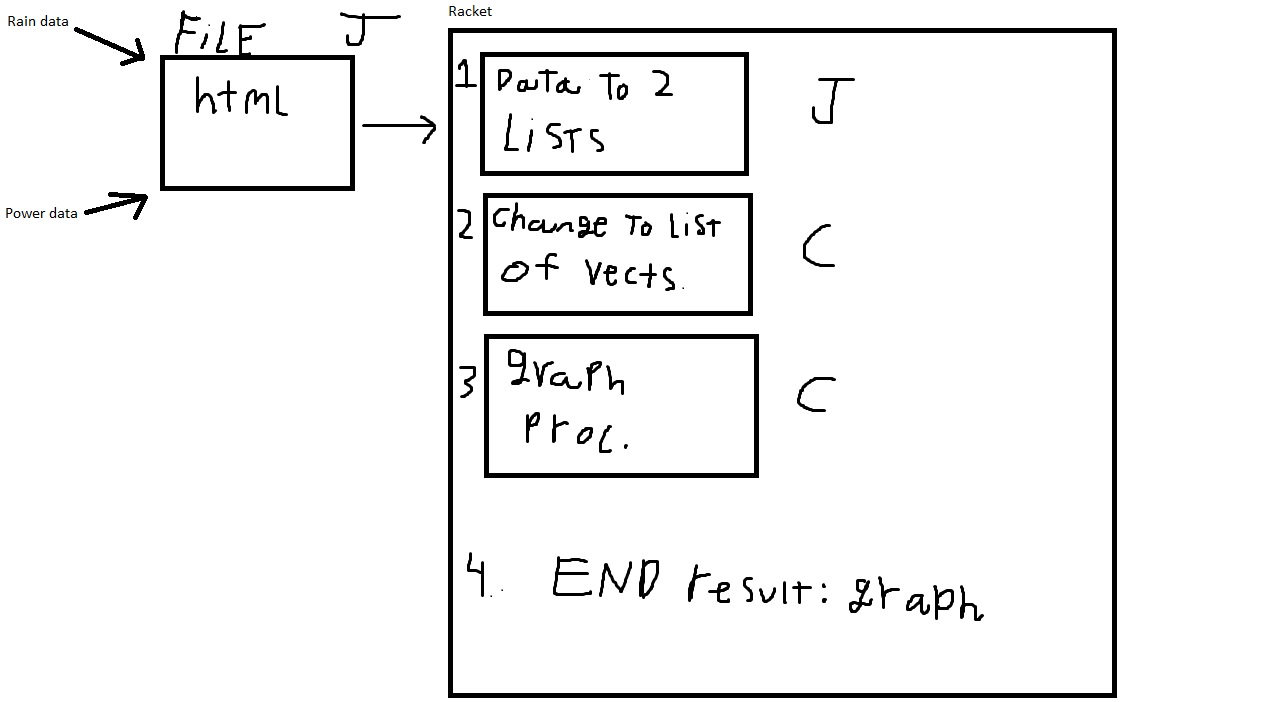 Rain data
FiLE J
html
Power data
Racket
1 Data To 2
LiSTS
J
2 Change To List
of Vects.
C
3 graph
Proc.
C
4. END result: graph